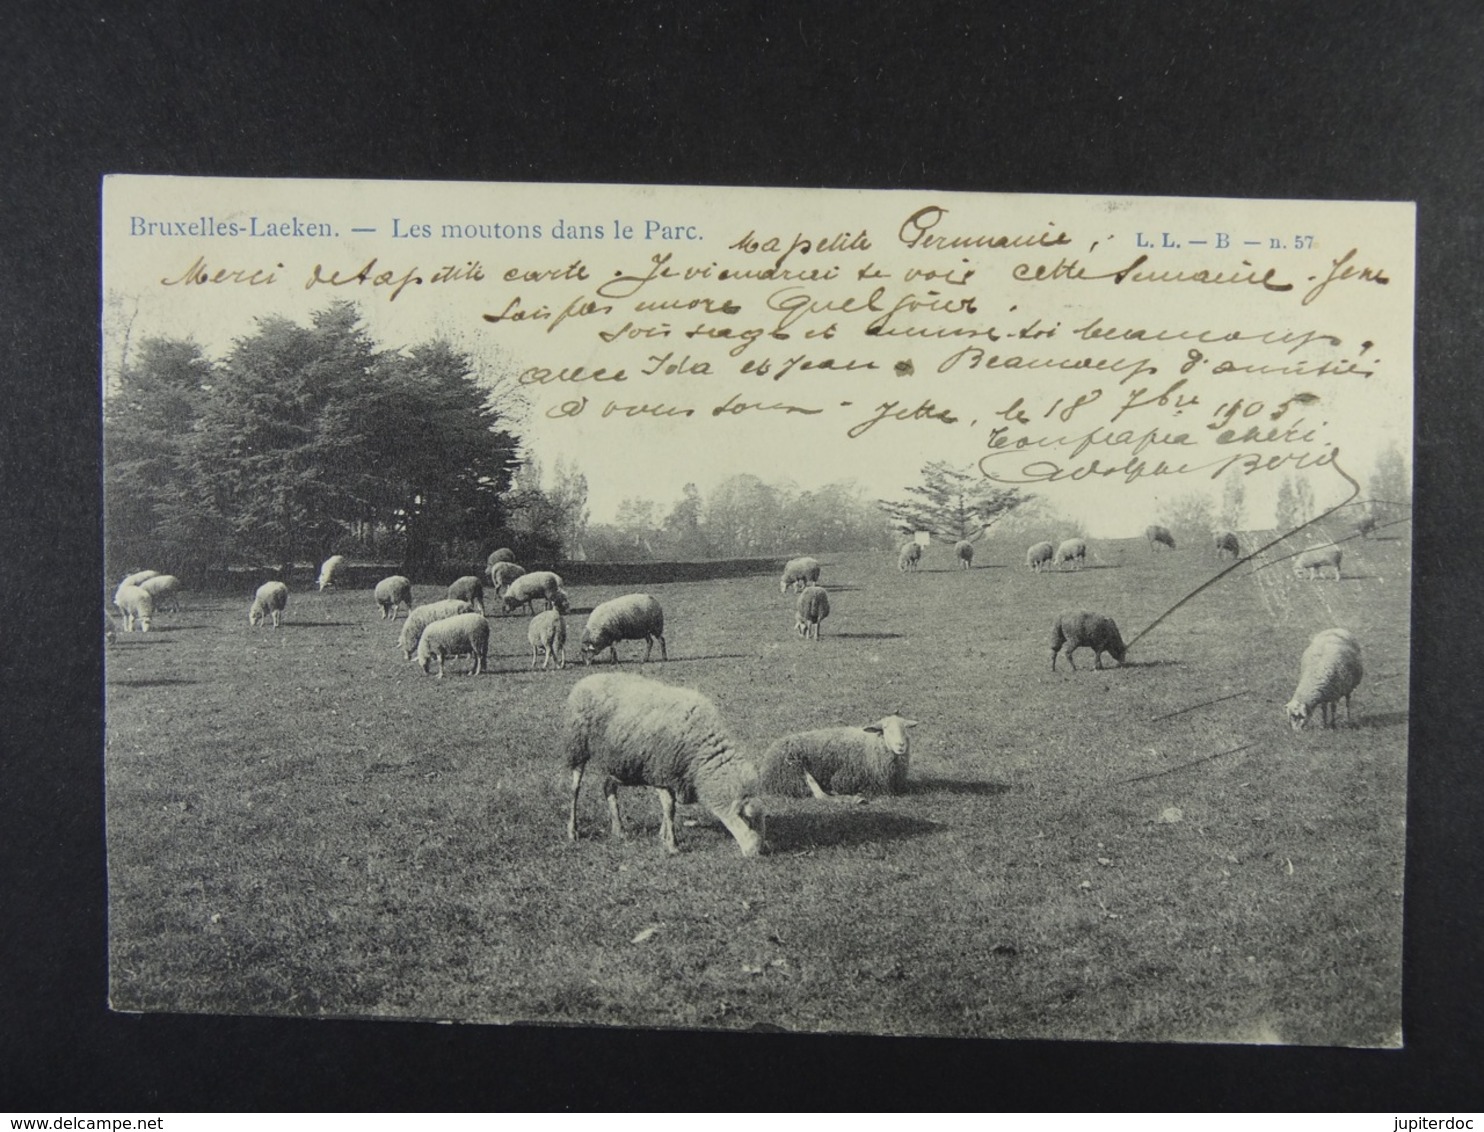 Bruxelles-Laeken. — Les moutons dans le Parc.
L. L. — B — n. 57
Ma petite Germanie,
Merci de ta petite carte. Je viendrai te voir cette Semaine. Je ne
sais pas encore Quel jour.
Sois sage et amuse-toi beaucoup,
avec Ida et Jean. Beaucoup d'amitiés
à vous tous - Jette, le 18 7bre 1905
Ton papa chéri.
Adolphe
delcampe.net
jupiterdoc